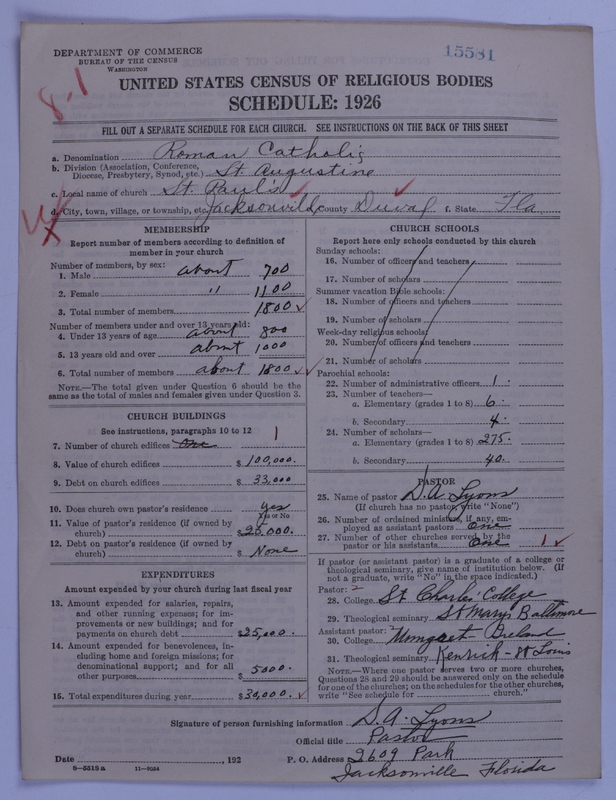 DEPARTMENT OF COMMERCE
BUREAU OF THE CENSUS
WASHINGTON
15581
8.1
UNITED STATES CENSUS OF RELIGIOUS BODIES
SCHEDULE: 1926
FILL OUT A SEPARATE SCHEDULE FOR EACH CHURCH. SEE INSTRUCTIONS ON THE BACK OF THIS SHEET
a. Denomination Roman Catholic
b. Division (Association, Conference, Diocese, Presbytery, Synod, etc.) St. Augustine
c. Local name of church St. Paul's
d. City, town, village, or township, etc. Jacksonville e. County Duval f. State Fla
MEMBERSHIP
Report number of members according to definition of member in your church
Number of members, by sex:
1. Male about 700
2. Female " 1100
3. Total number of members 1800
Number of members under and over 13 years old:
4. Under 13 years of age about 800
5. 13 years old and over about 1000
6. Total number of members about 1800
NOTE.—The total given under Question 6 should be the same as the total of males and females given under Question 3.
CHURCH BUILDINGS
See instructions, paragraphs 10 to 12
7. Number of church edifices One 1
8. Value of church edifices $ 100,000.
9. Debt on church edifices $ 33,000
10. Does church own pastor's residence? yes
Yes or No
11. Value of pastor's residence (if owned by church) $ 25,000.
12. Debt on pastor's residence (if owned by church) $ None
EXPENDITURES
Amount expended by your church during last fiscal year
13. Amount expended for salaries, repairs, and other running expenses; for improvements or new buildings; and for payments on church debt $25,000.
14. Amount expended for benevolences, including home and foreign missions; for denominational support; and for all other purposes $ 5000.
15. Total expenditures during year $30,000.
CHURCH SCHOOLS
Report here only schools conducted by this church
Sunday schools:
16. Number of officers and teachers
17. Number of scholars
Summer vacation Bible schools:
18. Number of officers and teachers
19. Number of scholars
Week-day religious schools:
20. Number of officers and teachers
21. Number of scholars
Parochial schools:
22. Number of administrative officers 1
23. Number of teachers—
a. Elementary (grades 1 to 8) 6
b. Secondary 4
24. Number of scholars—
a. Elementary (grades 1 to 8) 275
b. Secondary 40
PASTOR
25. Name of pastor D. A. Lyons
(If church has no pastor, write "None")
26. Number of ordained ministers, if any, employed as assistant pastors One
27. Number of other churches served by the pastor or his assistants One 1
If pastor (or assistant pastor) is a graduate of a college or theological seminary, give name of institution below. (If not a graduate, write "No" in the space indicated.)
Pastor:
28. College St Charles' College
29. Theological seminary St Mary's Baltimore
Assistant pastor:
30. College Mungret Ireland
31. Theological seminary Kenrick - St Louis
NOTE.—Where one pastor serves two or more churches, Questions 28 and 29 should be answered only on the schedule for one of the churches; on the schedules for the other churches, write "See schedule for church."
Signature of person furnishing information D. A. Lyons
Official title Pastor
Date , 192 P. O. Address 2609 Park
Jacksonville Florida
11—9024